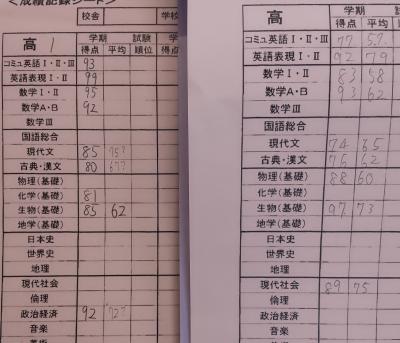 <成績記録シート>
校舎 学校
高 1 学期 試験 学
得点 平均 順位 得
コミュ英語Ⅰ・Ⅱ・Ⅲ 93
英語表現Ⅰ・Ⅱ 99
数学Ⅰ・Ⅱ 95
数学A・B 92
数学Ⅲ
国語総合
現代文 85 75?
古典・漢文 80 67?
物理(基礎)
化学(基礎) 81
生物(基礎) 85 62
地学(基礎)
日本史
世界史
地理
現代社会
倫理
政治経済 92 72?
音楽
高 学期 試験
得点 平均 順位
コミュ英語Ⅰ・Ⅱ・Ⅲ 77 57
英語表現Ⅰ・Ⅱ 92 79
数学Ⅰ・Ⅱ 83 58
数学A・B 93 62
数学Ⅲ
国語総合
現代文 74 65
古典・漢文 76 62
物理(基礎) 88 60
化学(基礎)
生物(基礎) 97 73
地学(基礎)
日本史
世界史
地理
現代社会 89 75
倫理
政治経済
音楽